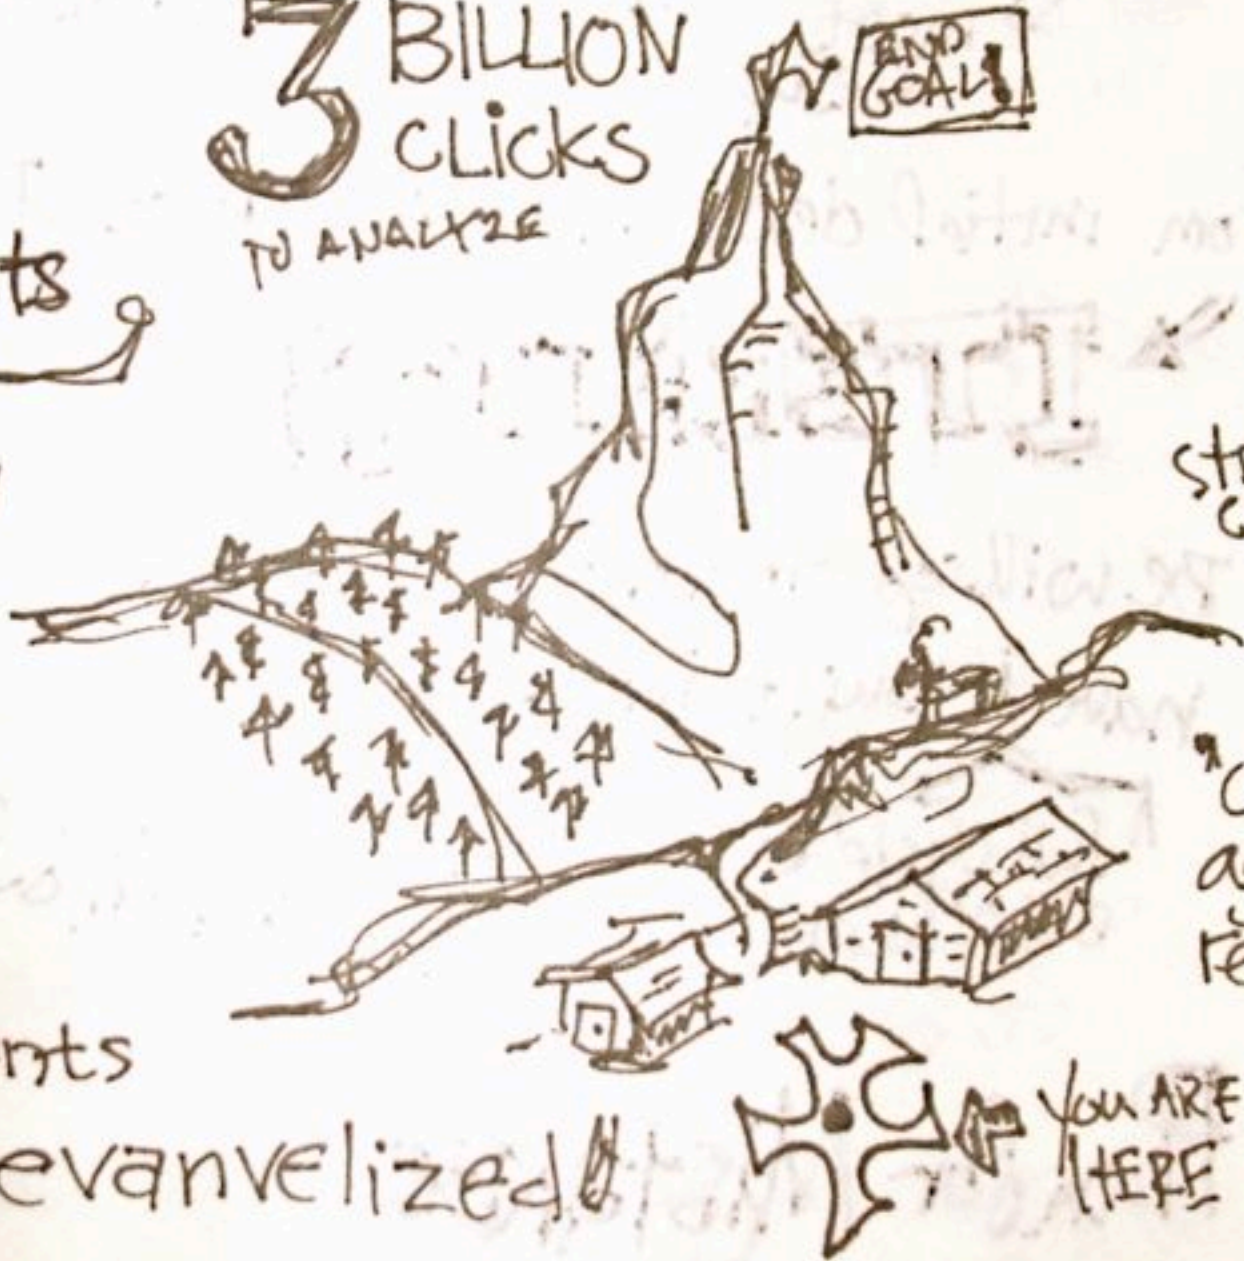 3 BILLION
CLICKS
TO ANALYZE
END
GOAL!
ts
nts
evanvelized
YOU ARE
HERE